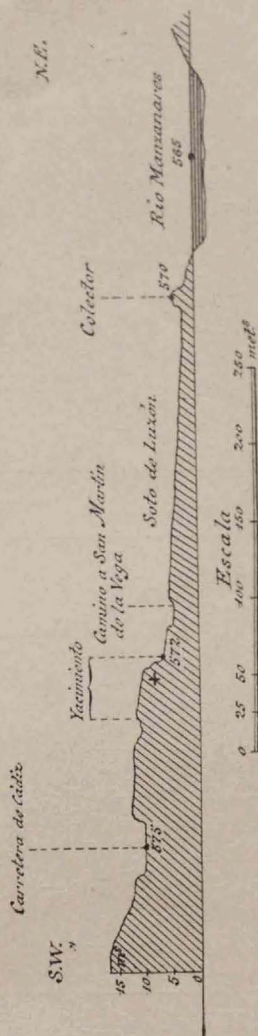 S.W.
N.E.
Carretera de Cádiz
Yacimiento
Camino a San Martín
de la Vega
Soto de Luzón
Colector
Río Manzanares
575
572
570
565
15
10
5
0
Escala
0 25 50 100 150 200 250
metˢ